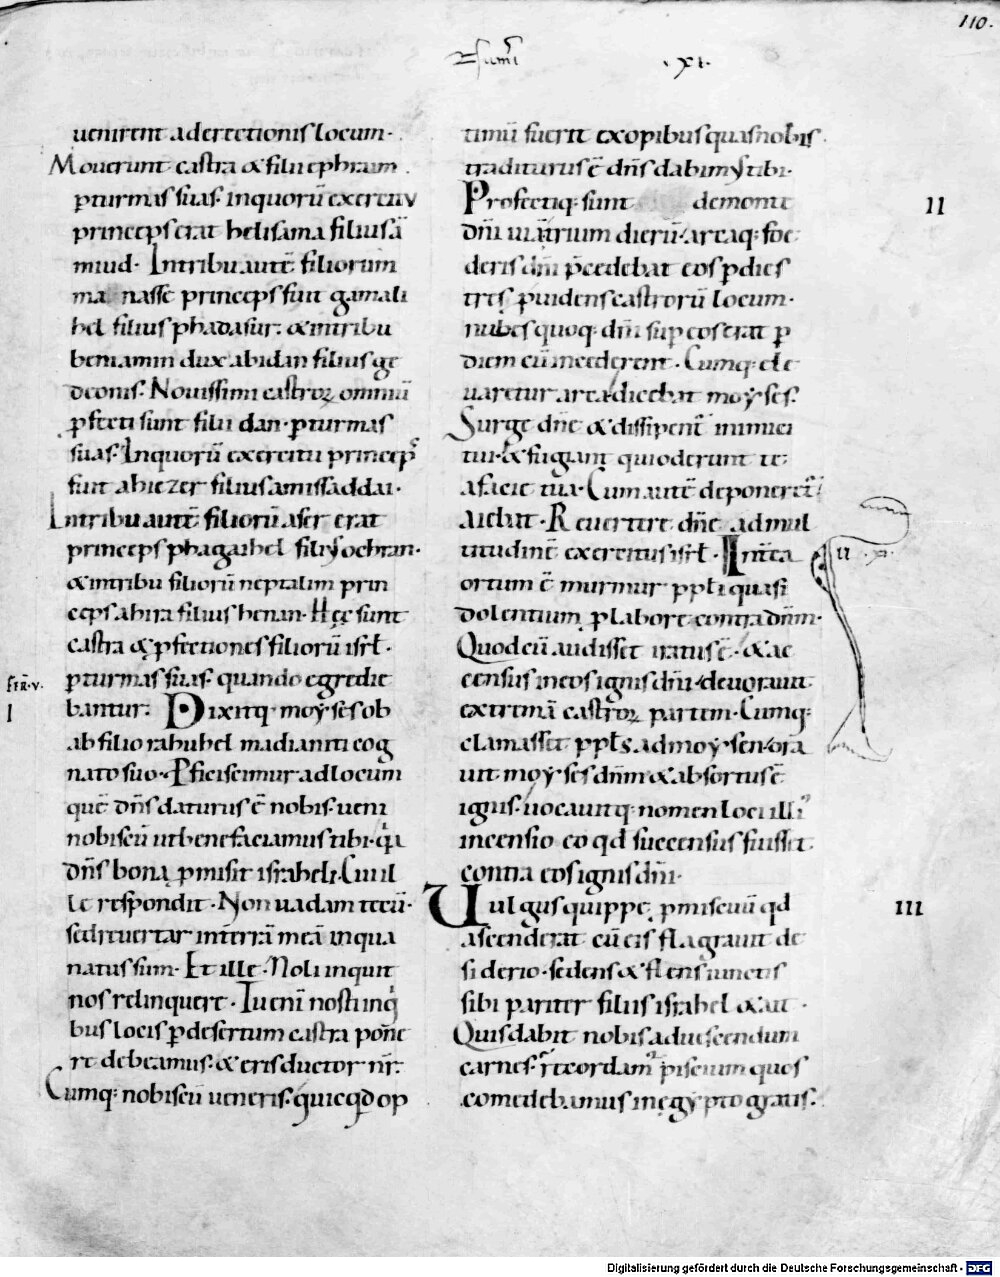 110.
.XI.
uenirent ad erectionis locum.
Mouerunt castra & filii ephraim
p turmas suas. in quorū exercitu
princeps erat helisama filius ā
miud. In tribu autē filiorum
ma nasse princeps fuit gamali
hel filius phadasur. & in tribu
beniamin dux abidan filius ge
deonis. Nouissimi castroꝝ omniū
pfecti sunt filii dan. p turmas
suas. In quorū exercitu princeps
fuit abiezer filius amisaddai.
In tribu autē filiorū aser erat
princeps phagaihel filius ochran.
& in tribu filiorū neptalim prin
ceps ahira filius henan. Hęc sunt
castra & pfectiones filiorū isrł.
p turmas suas. quando egredie
bantur. Dixitq; moyses ob
ab filio rahuhel madianiti cog
nato suo. Pficiscimur ad locum
quē dn̄s daturus ē nobis. ueni
nobiscū ut benefaciamus tibi. q̇a
dn̄s bona pmisit israheli. Cui il
le respondit. Non uadam tecū.
sed reuertar in terrā meā in qua
natus sum. Et ille. Noli inquit
nos relinquere. Tu eni nosti in q̇
bus locis p desertum castra pone
re debeamus. & eris ductor nr̄.
Cumq; nobiscū ueneris. quicqd op
I
timū fuerit ex opibus quas nobis
traditurus ē dn̄s dabimus tibi.
Profectiq; sunt de monte
dn̄i uia trium dierū. arcaq; foe
deris dn̄i pcedebat eos p dies
tres puidens castrorū locum.
nubes quoq; dn̄i sup eos erat p
diem cū incederent. Cumq; ele
uaretur arca dicebat moyses.
Surge dn̄e & dissipent inimici
tui. & fugiant qui oderunt te
a facie tua. Cum autē deponeret
aiebat. Reuertere dn̄e ad mul
titudinē exercitus isrł. Interea
ortum ē murmur ppli quasi
dolentium p labore contra dn̄m.
Quod cū audisset iratus ē. & ac
census in eos ignis dn̄i. deuorauit
extremā castroꝝ partem. Cumq;
clamasset ppls ad moysen. ora
uit moyses dn̄m & absortus ē
ignis. uocauitq; nomen loci illi
incensio eo qd succensus fuisset
contra eos ignis dn̄i.
Uulgus quippe pmiscuū qd
ascenderat cū eis flagrauit de
siderio. sedens & flens iunctis
sibi pariter filiis israhel & ait.
Quis dabit nobis ad uescendum
carnes. recordam pisciū quos
comedebamus in ęgypto gratis.
II
III
Digitalisierung gefördert durch die Deutsche Forschungsgemeinschaft - DFG